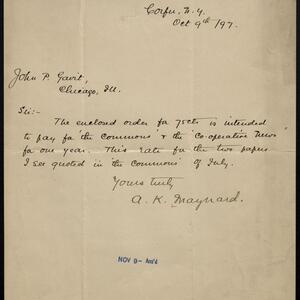 Corfu, N.Y.
Oct 9th/97.
John P. Gavit,
Chicago, Ill.
Sir:-
The enclosed order for 75cts is intended
to pay for "the Commons" & the "Co-operative News"
for one year. This rate for the two papers
I see quoted in "the Commons" of July.
Yours truly
A. K. Maynard.
NOV 9- Ans'd